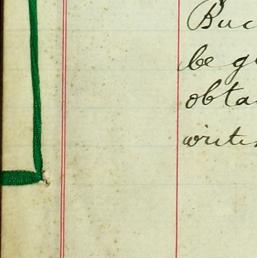 Buc
be g
obta
write